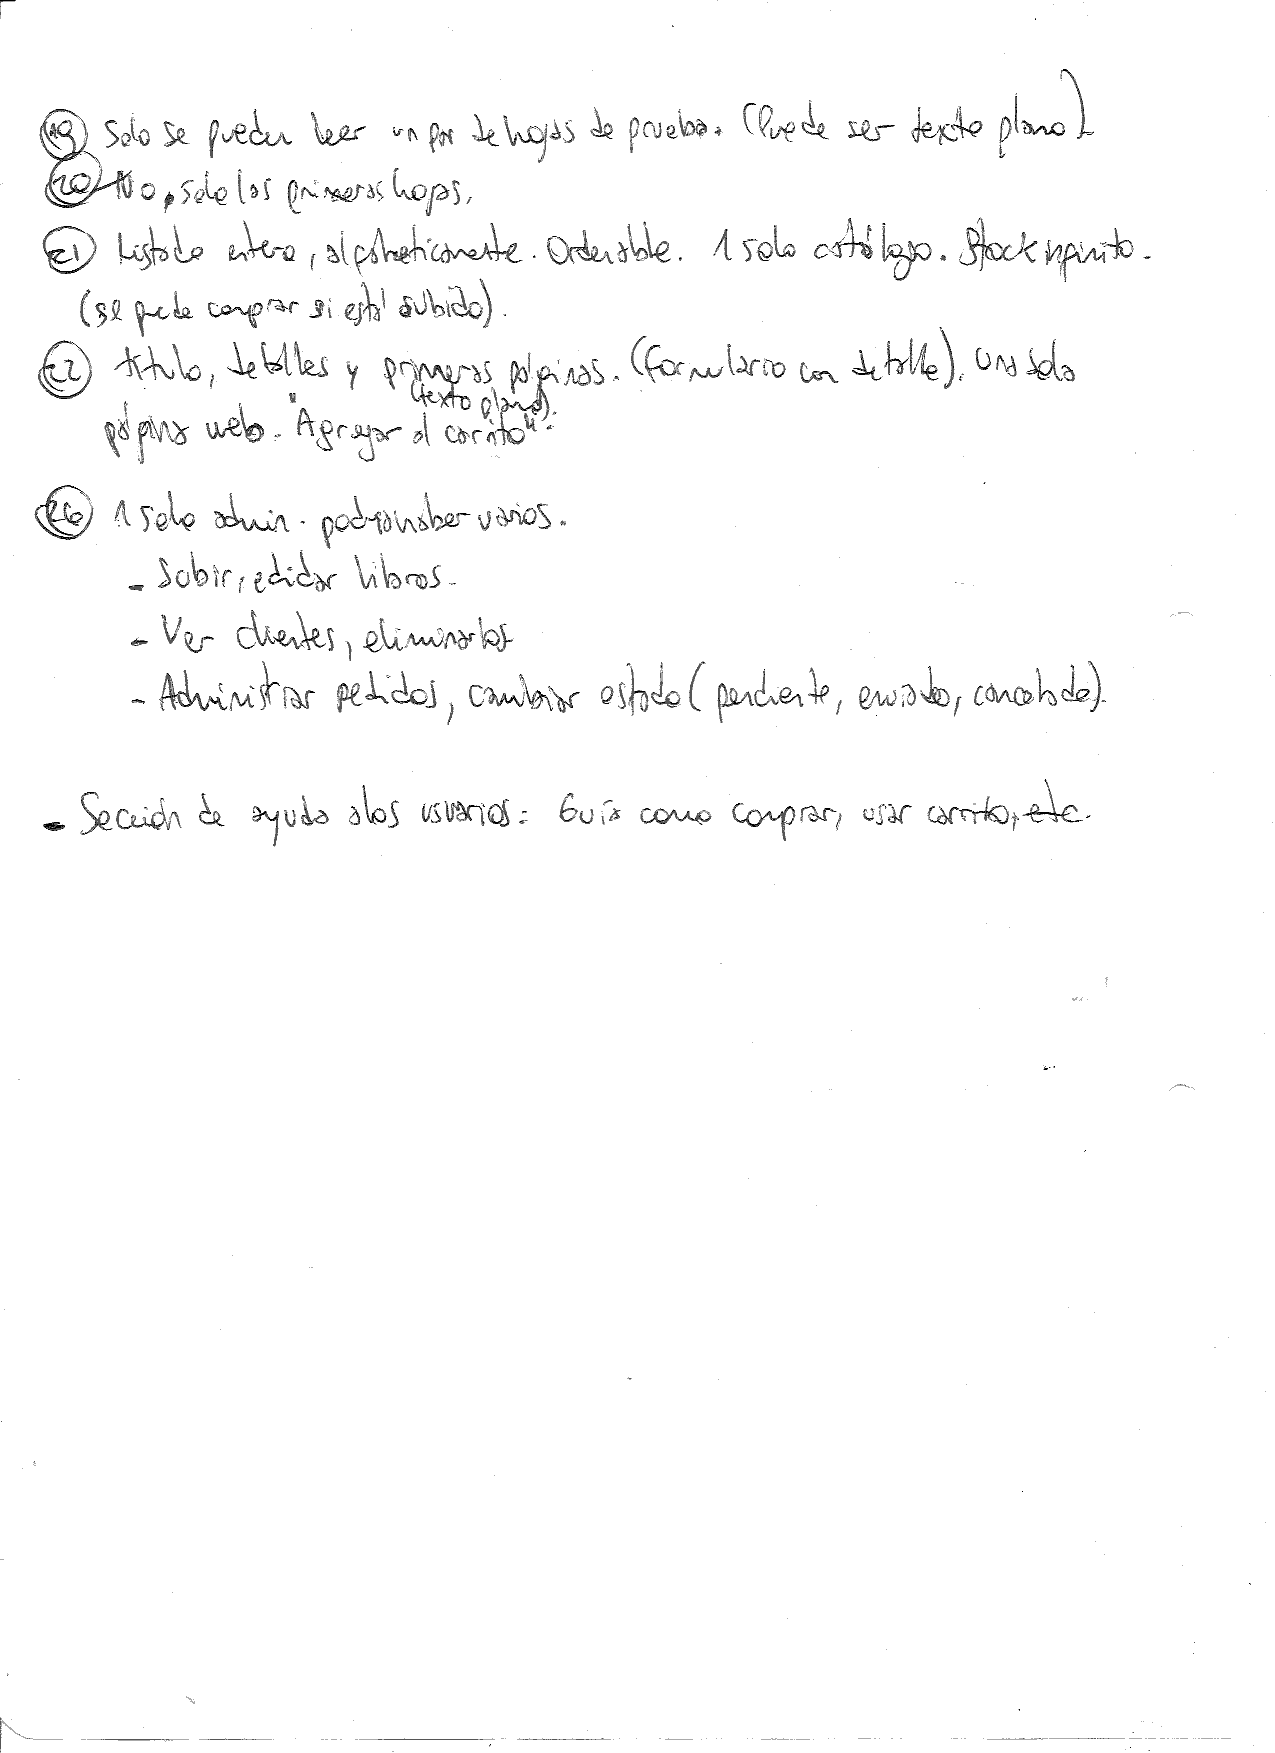 19 Solo se pueden leer un par de hojas de prueba. (Puede ser texto plano)
20 No, solo las primeras hojas.
21 Listado entero, alfabéticamente. Ordenable. 1 solo catálogo. Stock infinito.
(se puede comprar si está subido).
22 título, detalles y primeras páginas. (Formulario con detalle). Una sola
(texto plano).
página web. "Agregar al carrito".
26 1 solo admin. podrían haber varios.
- Subir, editar libros.
- Ver clientes, eliminarlos
- Administrar pedidos, cambiar estado (pendiente, enviado, cancelado).
- Sección de ayuda a los usuarios: Guía como comprar, usar carrito, etc.